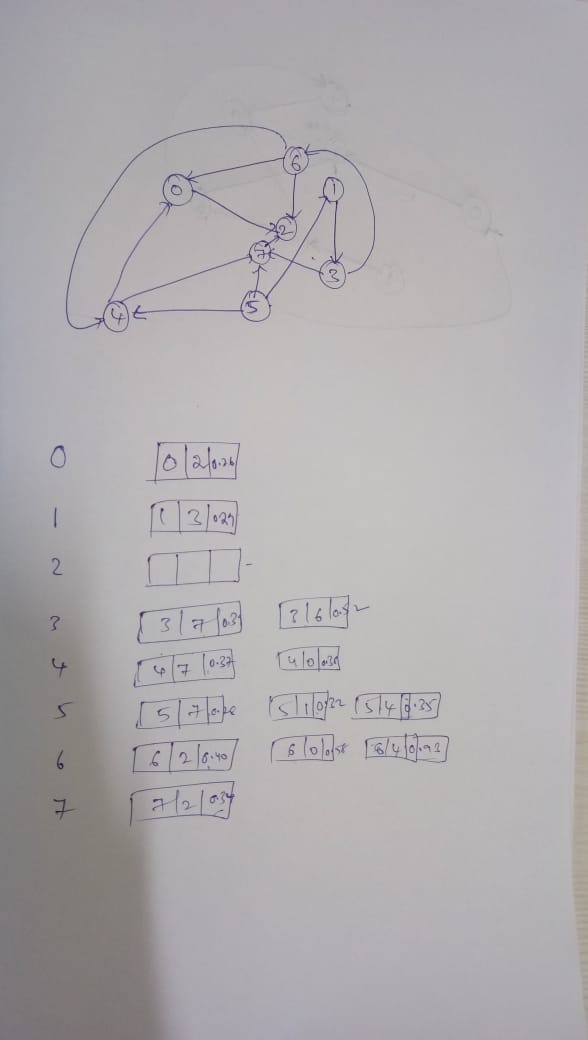 6
1
0
2
7
3
5
4
0 0 2 0.26
1 1 3 0.29
2
3 3 7 0.39 3 6 0.52
4 4 7 0.37 4 0 0.38
5 5 7 0.28 5 1 0.32 5 4 0.35
6 6 2 0.40 6 0 0.58 6 4 0.93
7 7 2 0.34